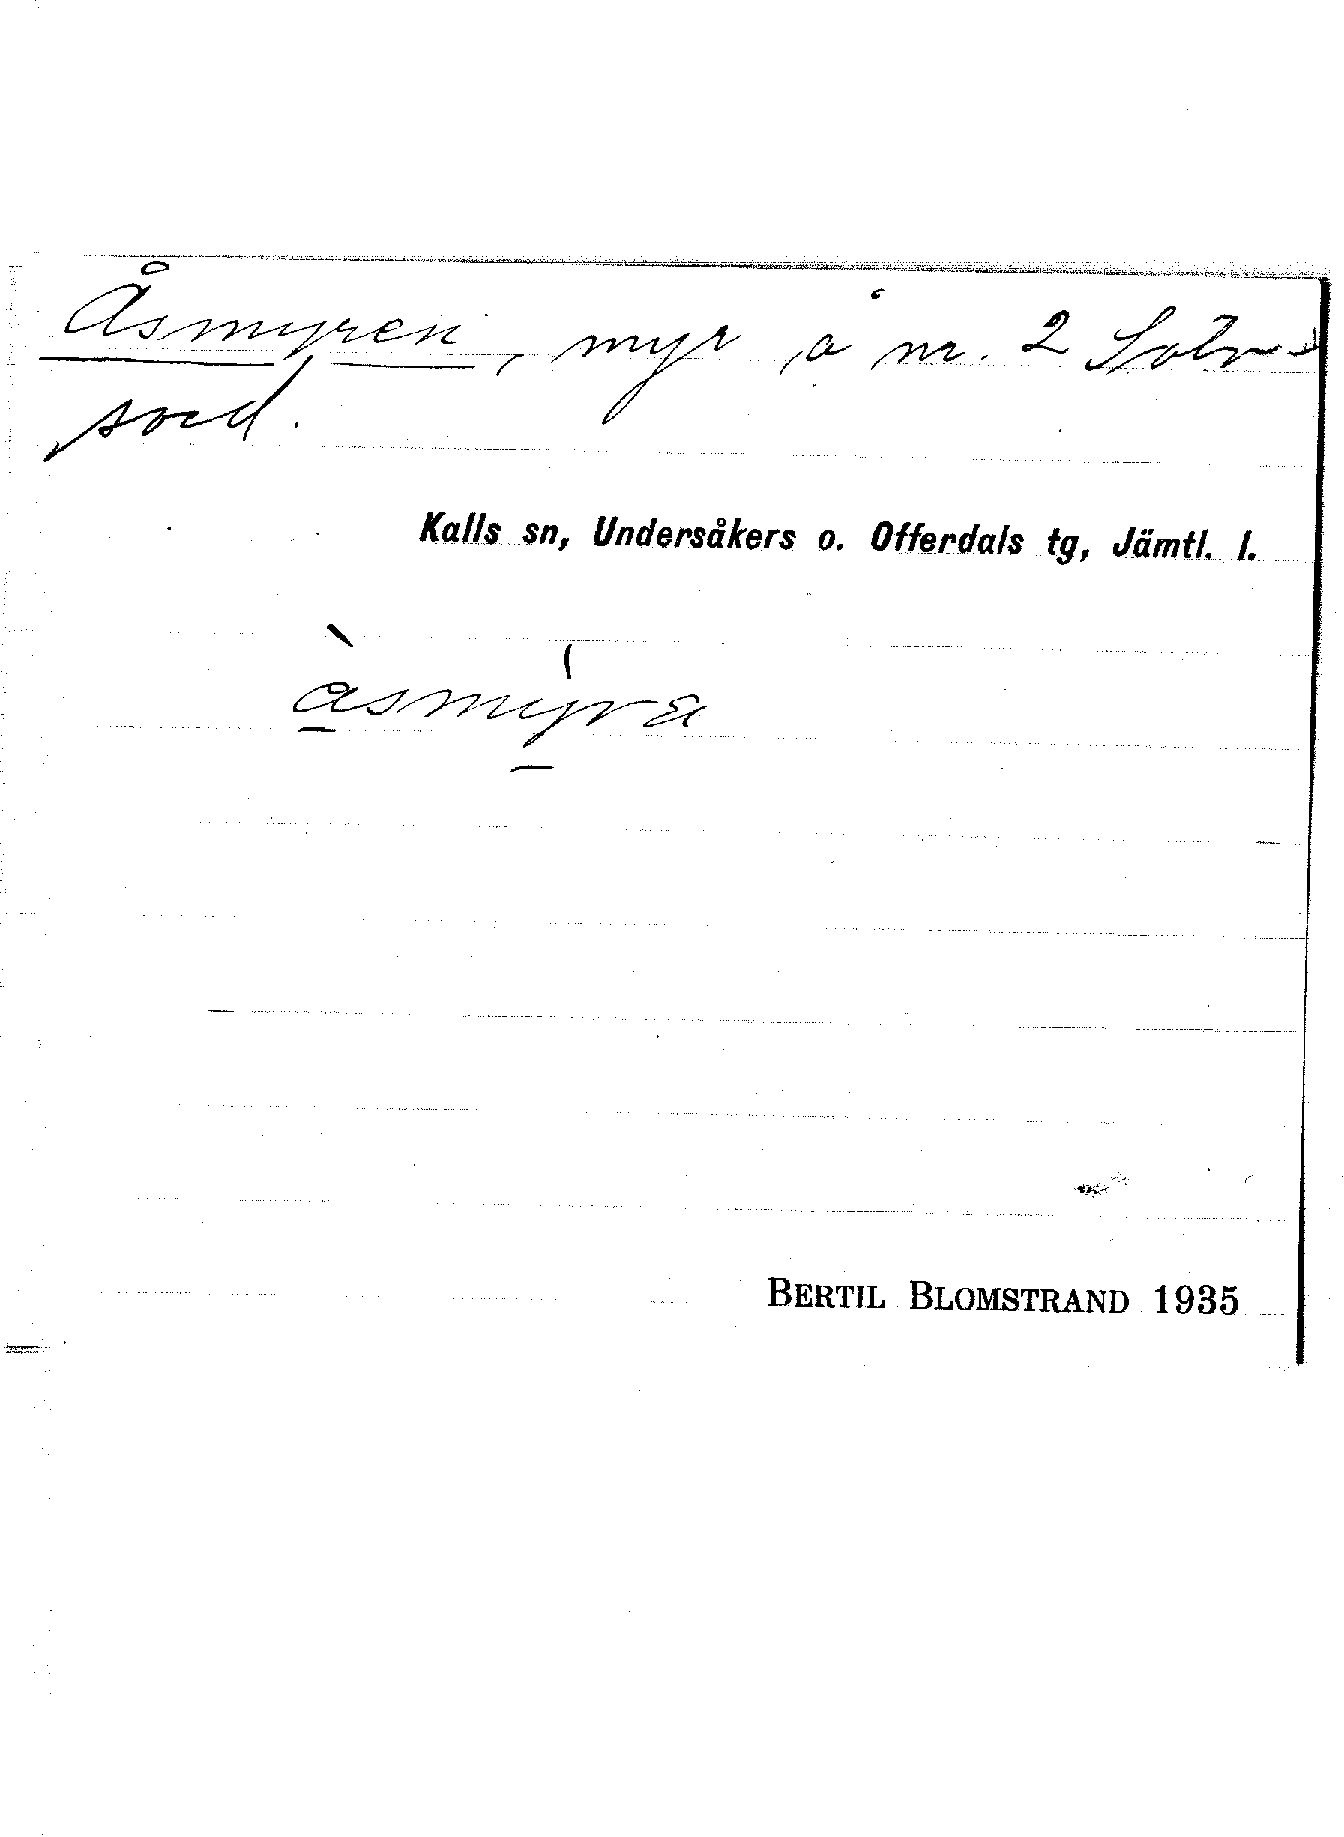 Åsmyren, myr å nr. 2 Sölv-
sved.
Kalls sn, Undersåkers o. Offerdals tg, Jämtl. l.
åsmyra
BERTIL BLOMSTRAND 1935